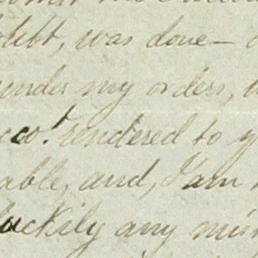 debt, was done —
under my orders,
acco.t rendered to y
able, and, I am
luckily any mis